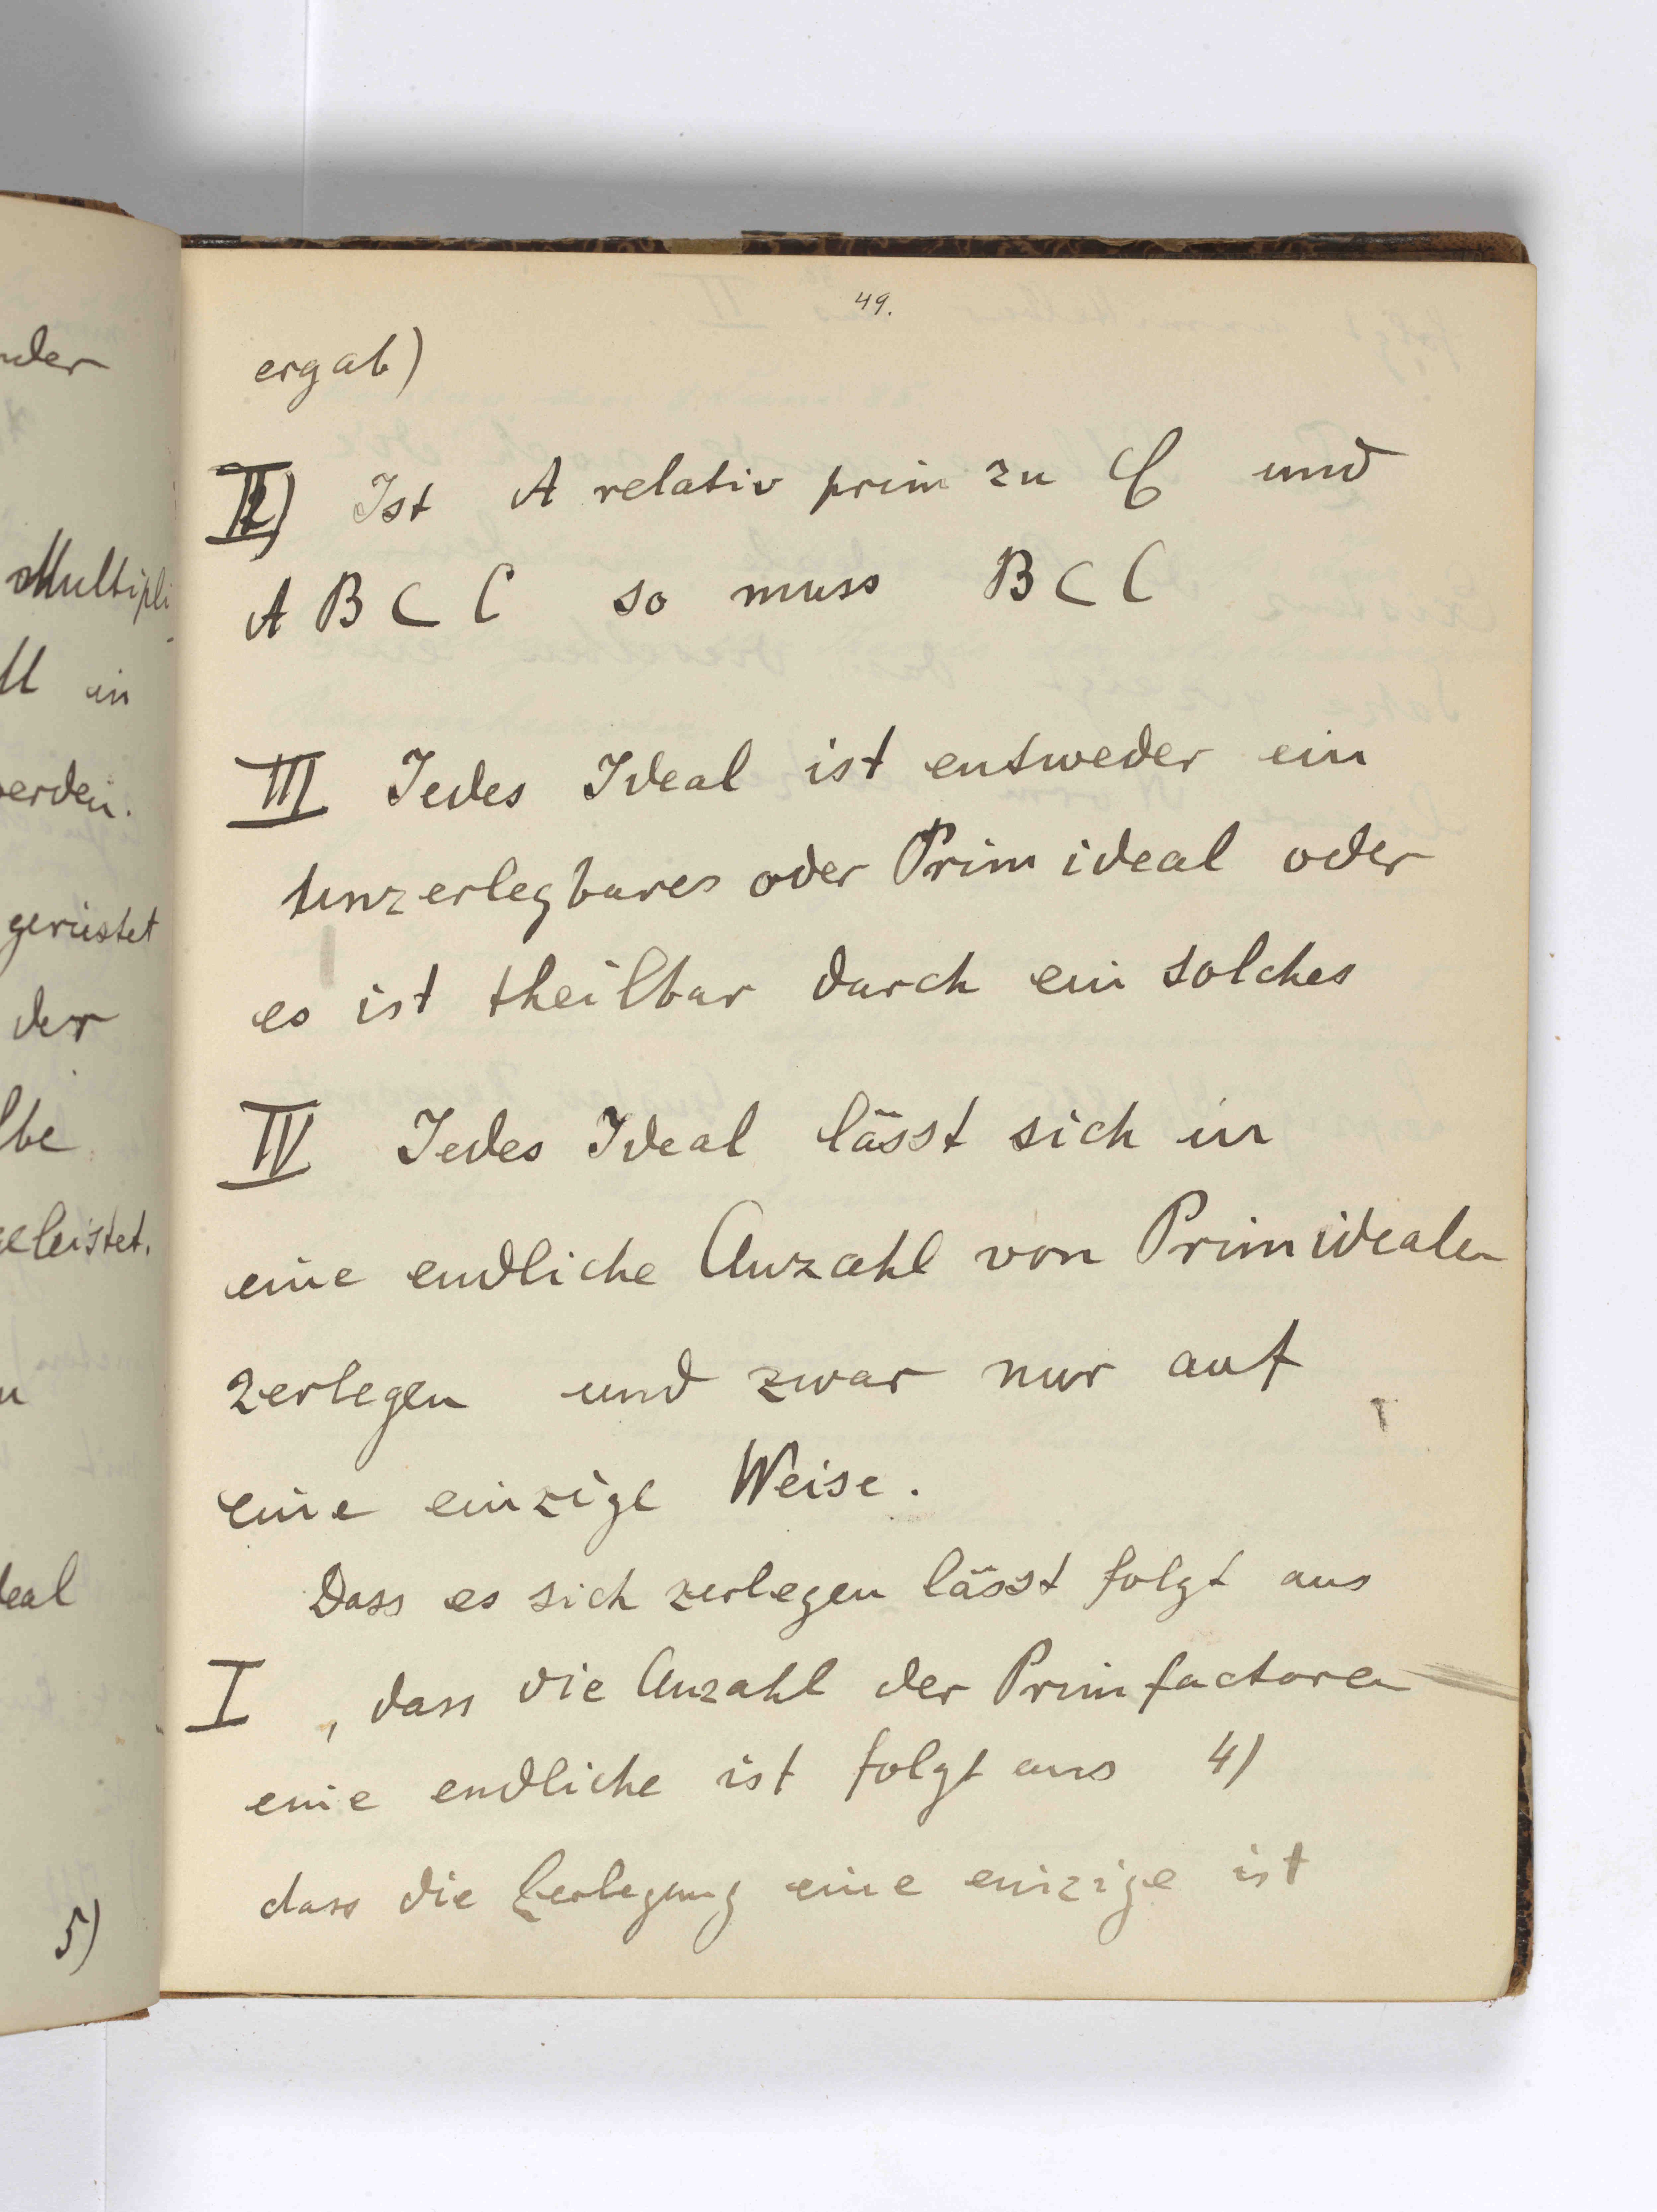 nder
Multipli-
M in
werden.
gerüstet
der
lbe
geleistet.
deal
5)
49.
ergab)
II) Ist A relativ prim zu C und
A B ⊂ C so muss B ⊂ C
III Jedes Ideal ist entweder ein
unzerlegbares oder Primideal oder
es ist theilbar durch ein solches
IV Jedes Ideal lässt sich in
eine endliche Anzahl von Primidealen
zerlegen und zwar nur auf
eine einzige Weise.
Dass es sich zerlegen lässt folgt aus
I , dass die Anzahl der Primfactoren
eine endliche ist folgt aus 4)
dass die Zerlegung eine einzige ist